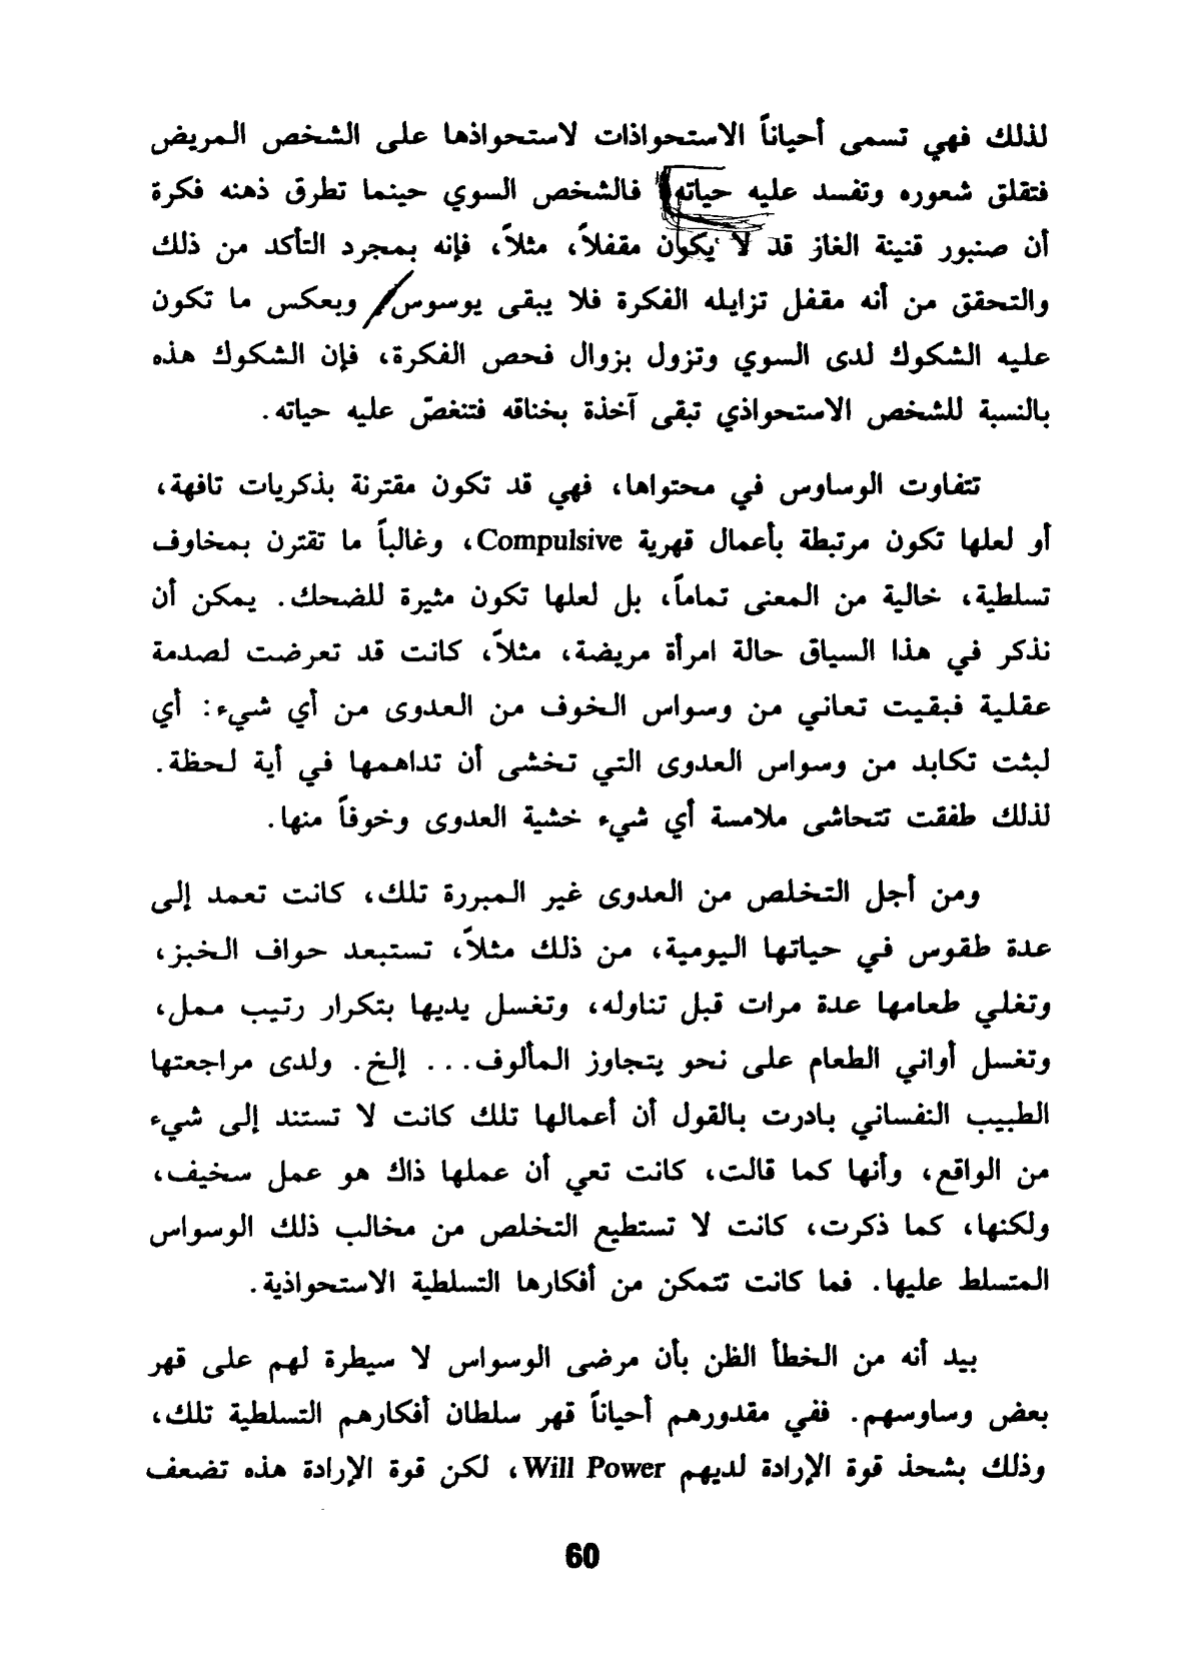 لذلك فهي تسمى أحياناً الاستحواذات لاستحواذها على الشخص المريض
فتقلق شعوره وتفسد عليه حياته فالشخص السوي حينما تطرق ذهنه فكرة
أن صنبور قنينة الغاز قد لا يكون مقفلاً، مثلاً، فإنه بمجرد التأكد من ذلك
والتحقق من أنه مقفل تزايله الفكرة فلا يبقى يوسوس/ وبعكس ما تكون
عليه الشكوك لدى السوي وتزول بزوال فحص الفكرة، فإن الشكوك هذه
بالنسبة للشخص الاستحواذي تبقى آخذة بخناقه فتنغصّ عليه حياته.
تتفاوت الوساوس في محتواها، فهي قد تكون مقترنة بذكريات تافهة،
أو لعلها تكون مرتبطة بأعمال قهرية Compulsive، وغالباً ما تقترن بمخاوف
تسلطية، خالية من المعنى تماماً، بل لعلها تكون مثيرة للضحك. يمكن أن
نذكر في هذا السياق حالة امرأة مريضة، مثلاً، كانت قد تعرضت لصدمة
عقلية فبقيت تعاني من وسواس الخوف من العدوى من أي شيء: أي
لبثت تكابد من وسواس العدوى التي تخشى أن تداهمها في أية لحظة.
لذلك طفقت تتحاشى ملامسة أي شيء خشية العدوى وخوفاً منها.
ومن أجل التخلص من العدوى غير المبررة تلك، كانت تعمد إلى
عدة طقوس في حياتها اليومية، من ذلك مثلاً، تستبعد حواف الخبز،
وتغلي طعامها عدة مرات قبل تناوله، وتغسل يديها بتكرار رتيب ممل،
وتغسل أواني الطعام على نحو يتجاوز المألوف... إلخ. ولدى مراجعتها
الطبيب النفساني بادرت بالقول أن أعمالها تلك كانت لا تستند إلى شيء
من الواقع، وأنها كما قالت، كانت تعي أن عملها ذاك هو عمل سخيف،
ولكنها، كما ذكرت، كانت لا تستطيع التخلص من مخالب ذلك الوسواس
المتسلط عليها. فما كانت تتمكن من أفكارها التسلطية الاستحواذية.
بيد أنه من الخطأ الظن بأن مرضى الوسواس لا سيطرة لهم على قهر
بعض وساوسهم. ففي مقدورهم أحياناً قهر سلطان أفكارهم التسلطية تلك،
وذلك بشحذ قوة الإرادة لديهم Will Power، لكن قوة الإرادة هذه تضعف
60